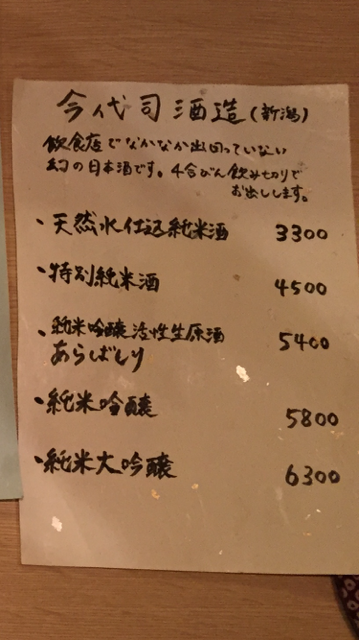 今代司酒造(新潟)
飲食店でなかなか出回っていない
幻の日本酒です。4合びん飲み切りで
お出しします。
・天然水仕込純米酒 3300
・特別純米酒 4500
・純米吟醸活性生原酒 5400
あらばしり
・純米吟醸 5800
・純米大吟醸 6300